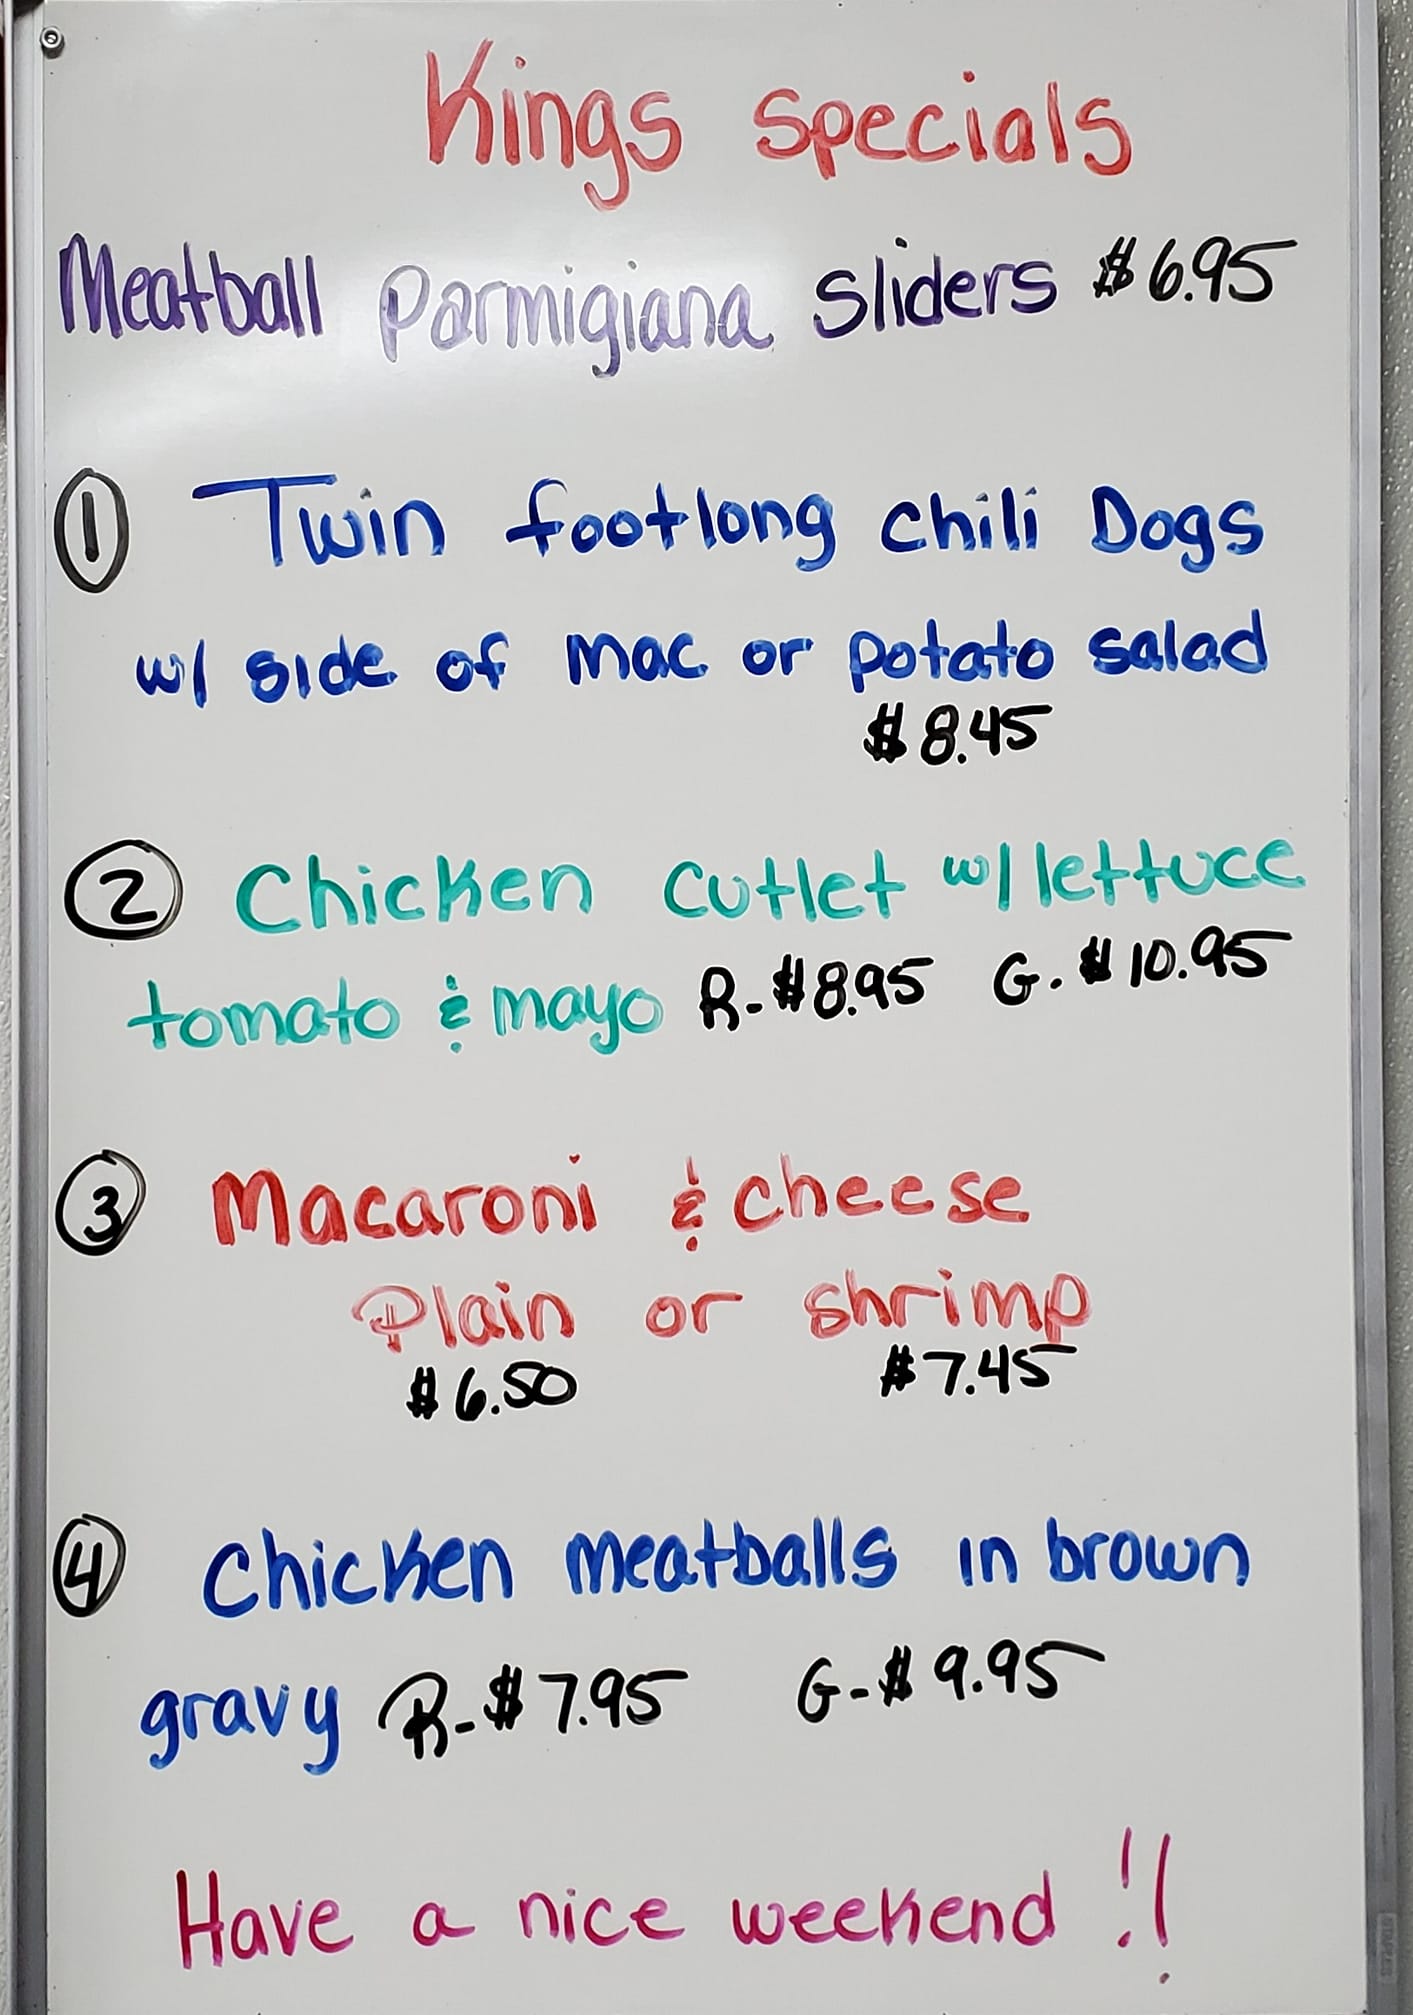 Kings Specials
Meatball Parmigiana Sliders $6.95
1 Twin footlong Chili Dogs
w/ side of mac or potato salad
$8.45
2 Chicken Cutlet w/ lettuce
tomato & mayo R-$8.95 G.$10.95
3 Macaroni & cheese
Plain or shrimp
$6.50 $7.45
4 Chicken meatballs in brown
gravy R-$7.95 G-$9.95
Have a nice weekend!!